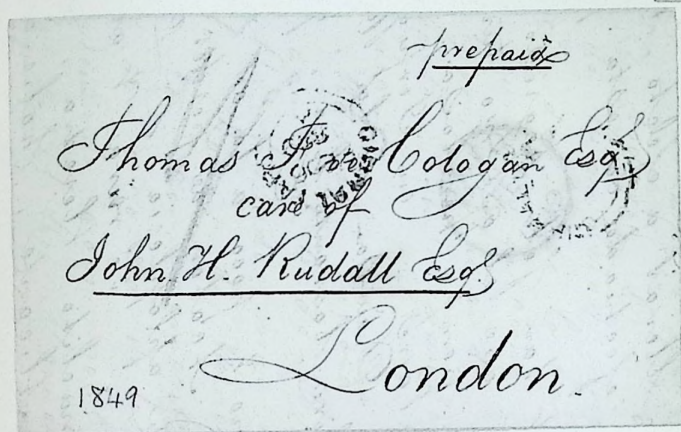 prepaid
Thomas F. de Cologan Esq.
care of
John H. Rudall Esq.
London.
1849